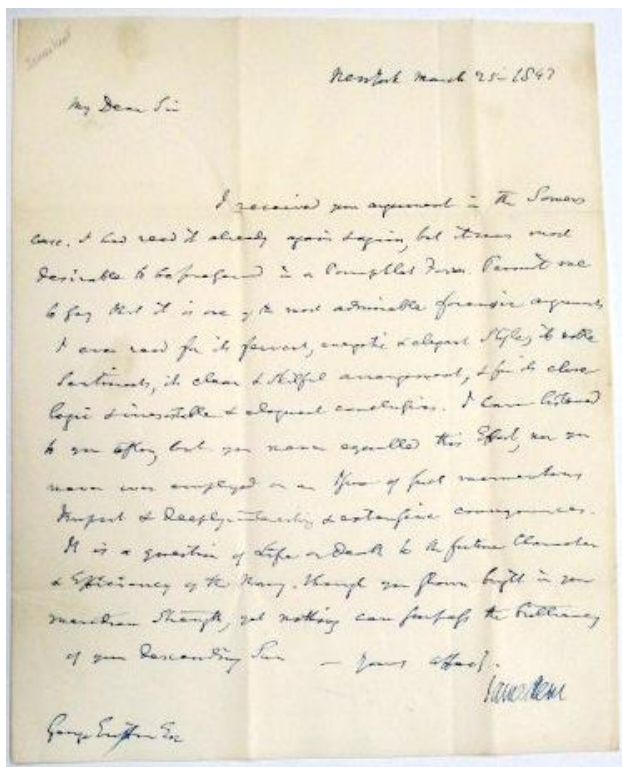 James Kent
New York March 25 - 1843
My Dear Sir
I received your argument in the Somers
case. I had read it already again & again, but it was most
desirable to be preserved in a Pamphlet Form. Permit me
to say that it is one of the most admirable forensic arguments
I ever read for its fervent, energetic & elegant style, its noble
Sentiments, its clear & skilful arrangement, & for its close
logic & irresistible & eloquent conclusions. I have listened
to you often, but you never equalled this Effort, nor you
never was employed on an Issue of such momentous
Import & Deeply interesting & extensive consequences.
It is a question of Life or Death to the future Character
& Efficiency of the Navy. Though you shown bright in your
meridian Strength, yet nothing can surpass the brilliancy
of your Descending Sun — Yours affecy.
James Kent
George Griffin Esq